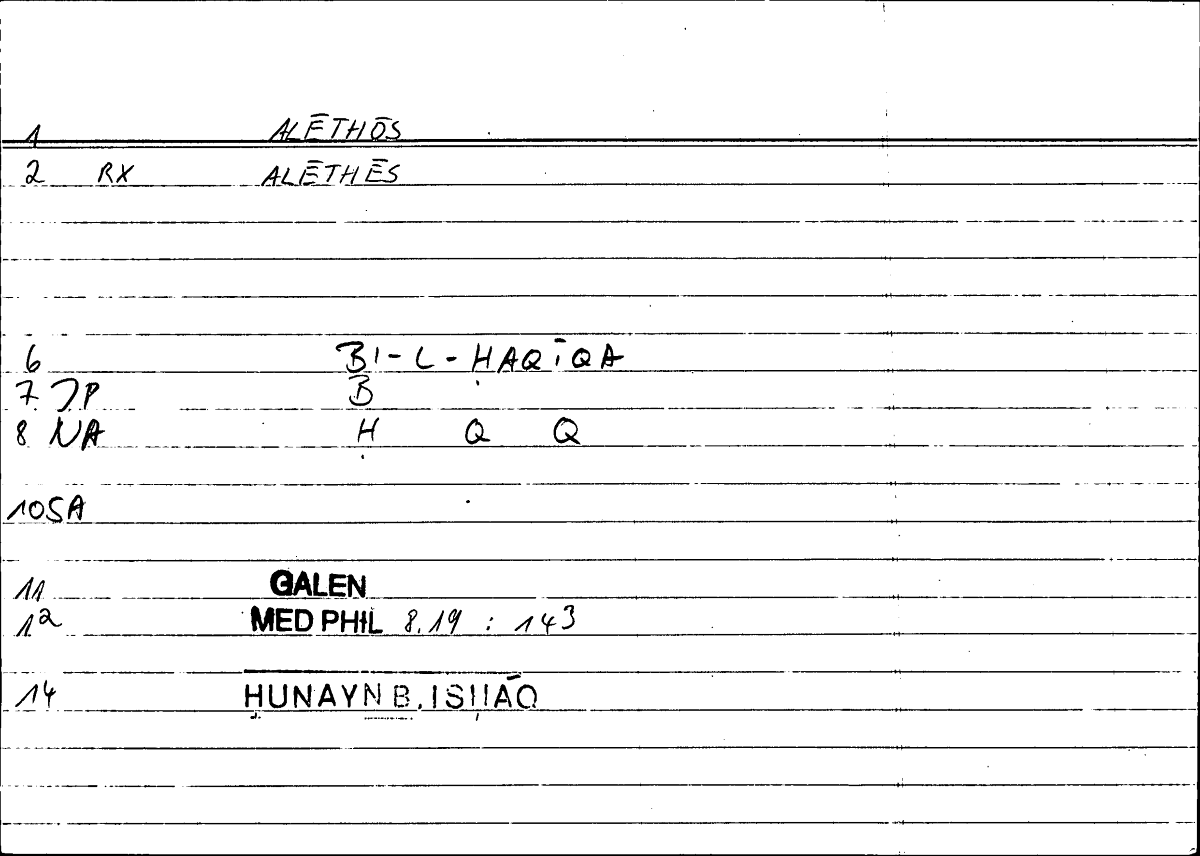 1 ALĒTHŌS
2 RX ALĒTHĒS
6 BI-L-ḤAQĪQA
7 JP B
8 NA Ḥ Q Q
10 SA
11 GALEN
12 MED PHIL 8.19 : 143
14 ḤUNAYN B. ISḤĀQ